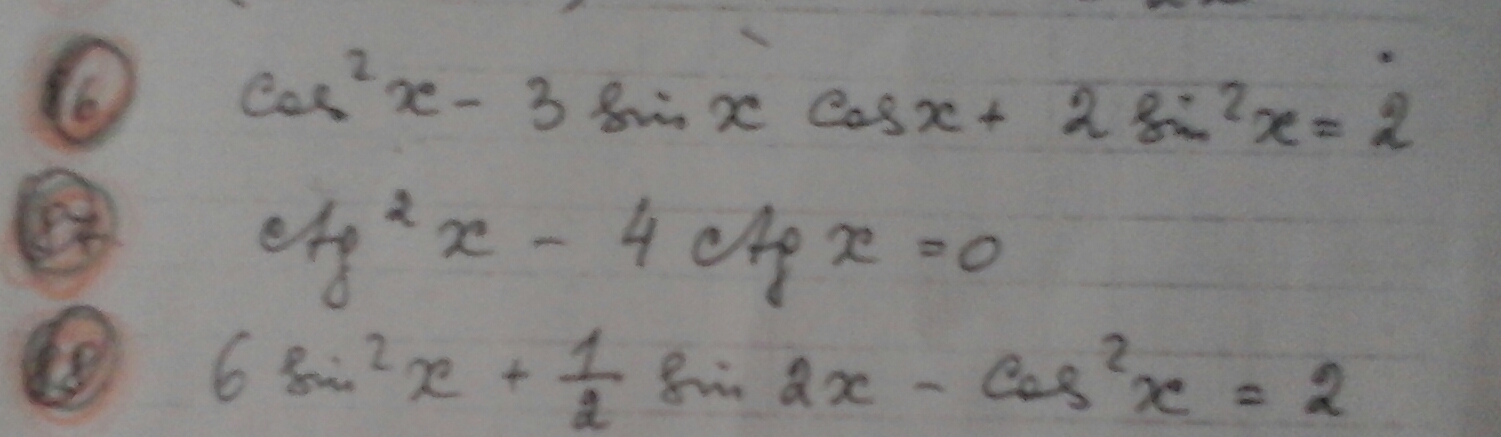 6 cos²x - 3 sin x cos x + 2 sin²x = 2
ctg²x - 4 ctg x = 0
18 6 sin²x + 1/2 sin 2x - cos²x = 2